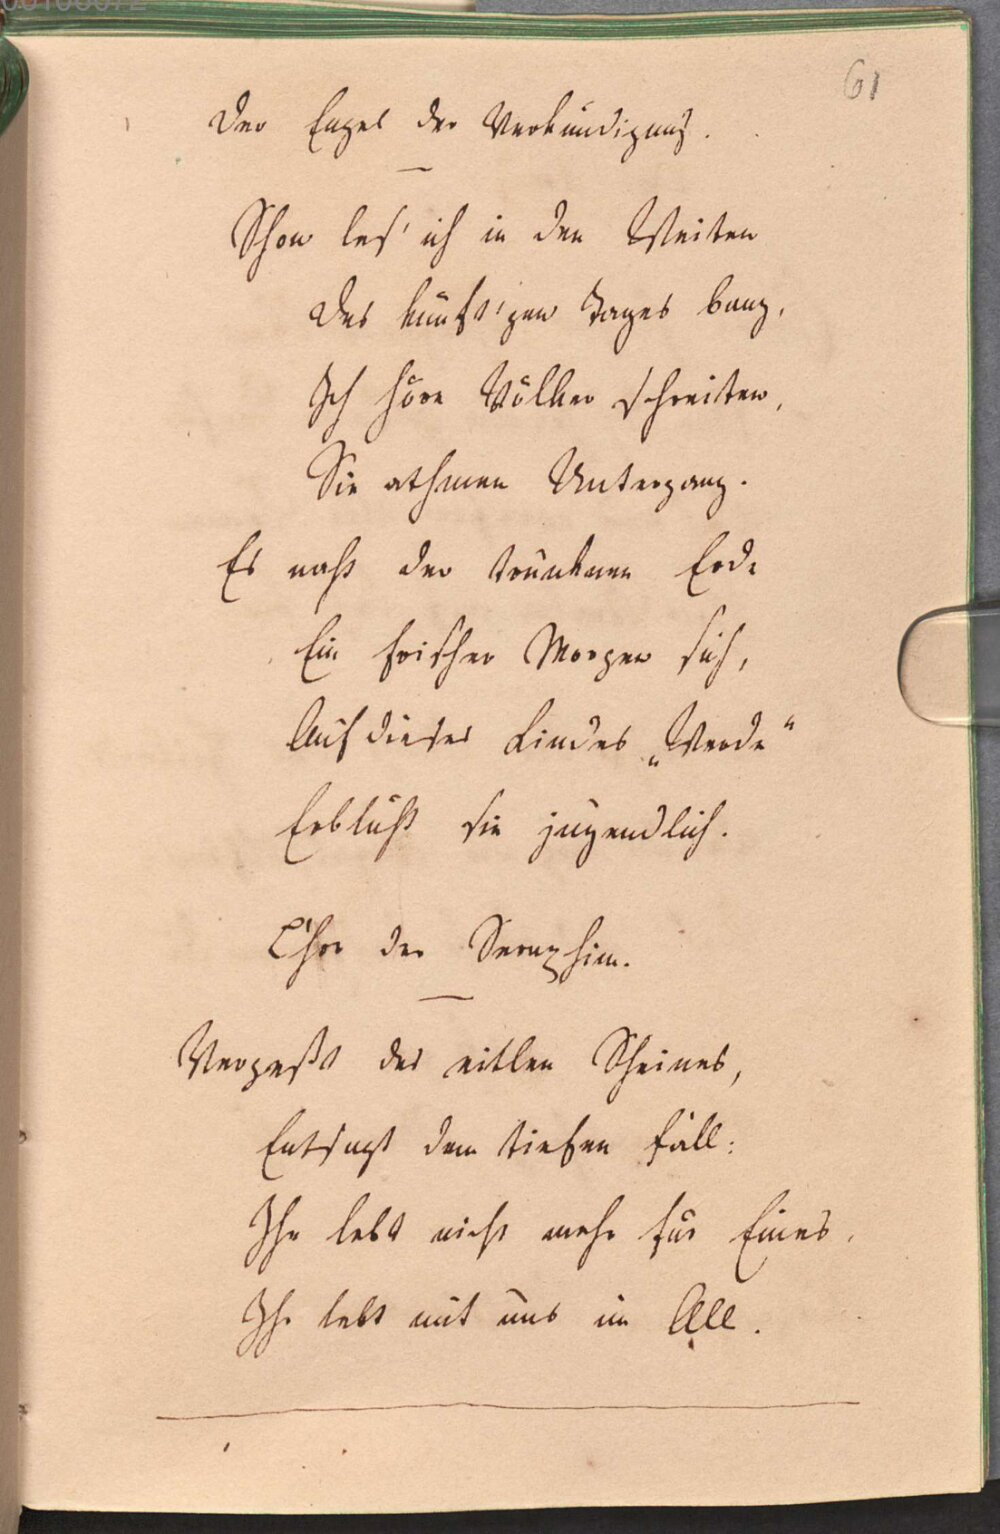 61
Der Engel der Verkündigung.
Schon les' ich in den Weiten
Des künft'gen Tages bang,
Ich höre Völker schreiten,
Sie athmen Untergang.
Es naht der trunknen Erde
Ein frischer Morgen sich,
Auf dieses Kindes „Werde“
Erblüht sie jugendlich.
Chor der Seraphim.
Vergeßt des eitlen Scheines,
Entsagt dem tiefen Fall:
Ihr lebt nicht mehr für Eines,
Ihr lebt mit uns im All.